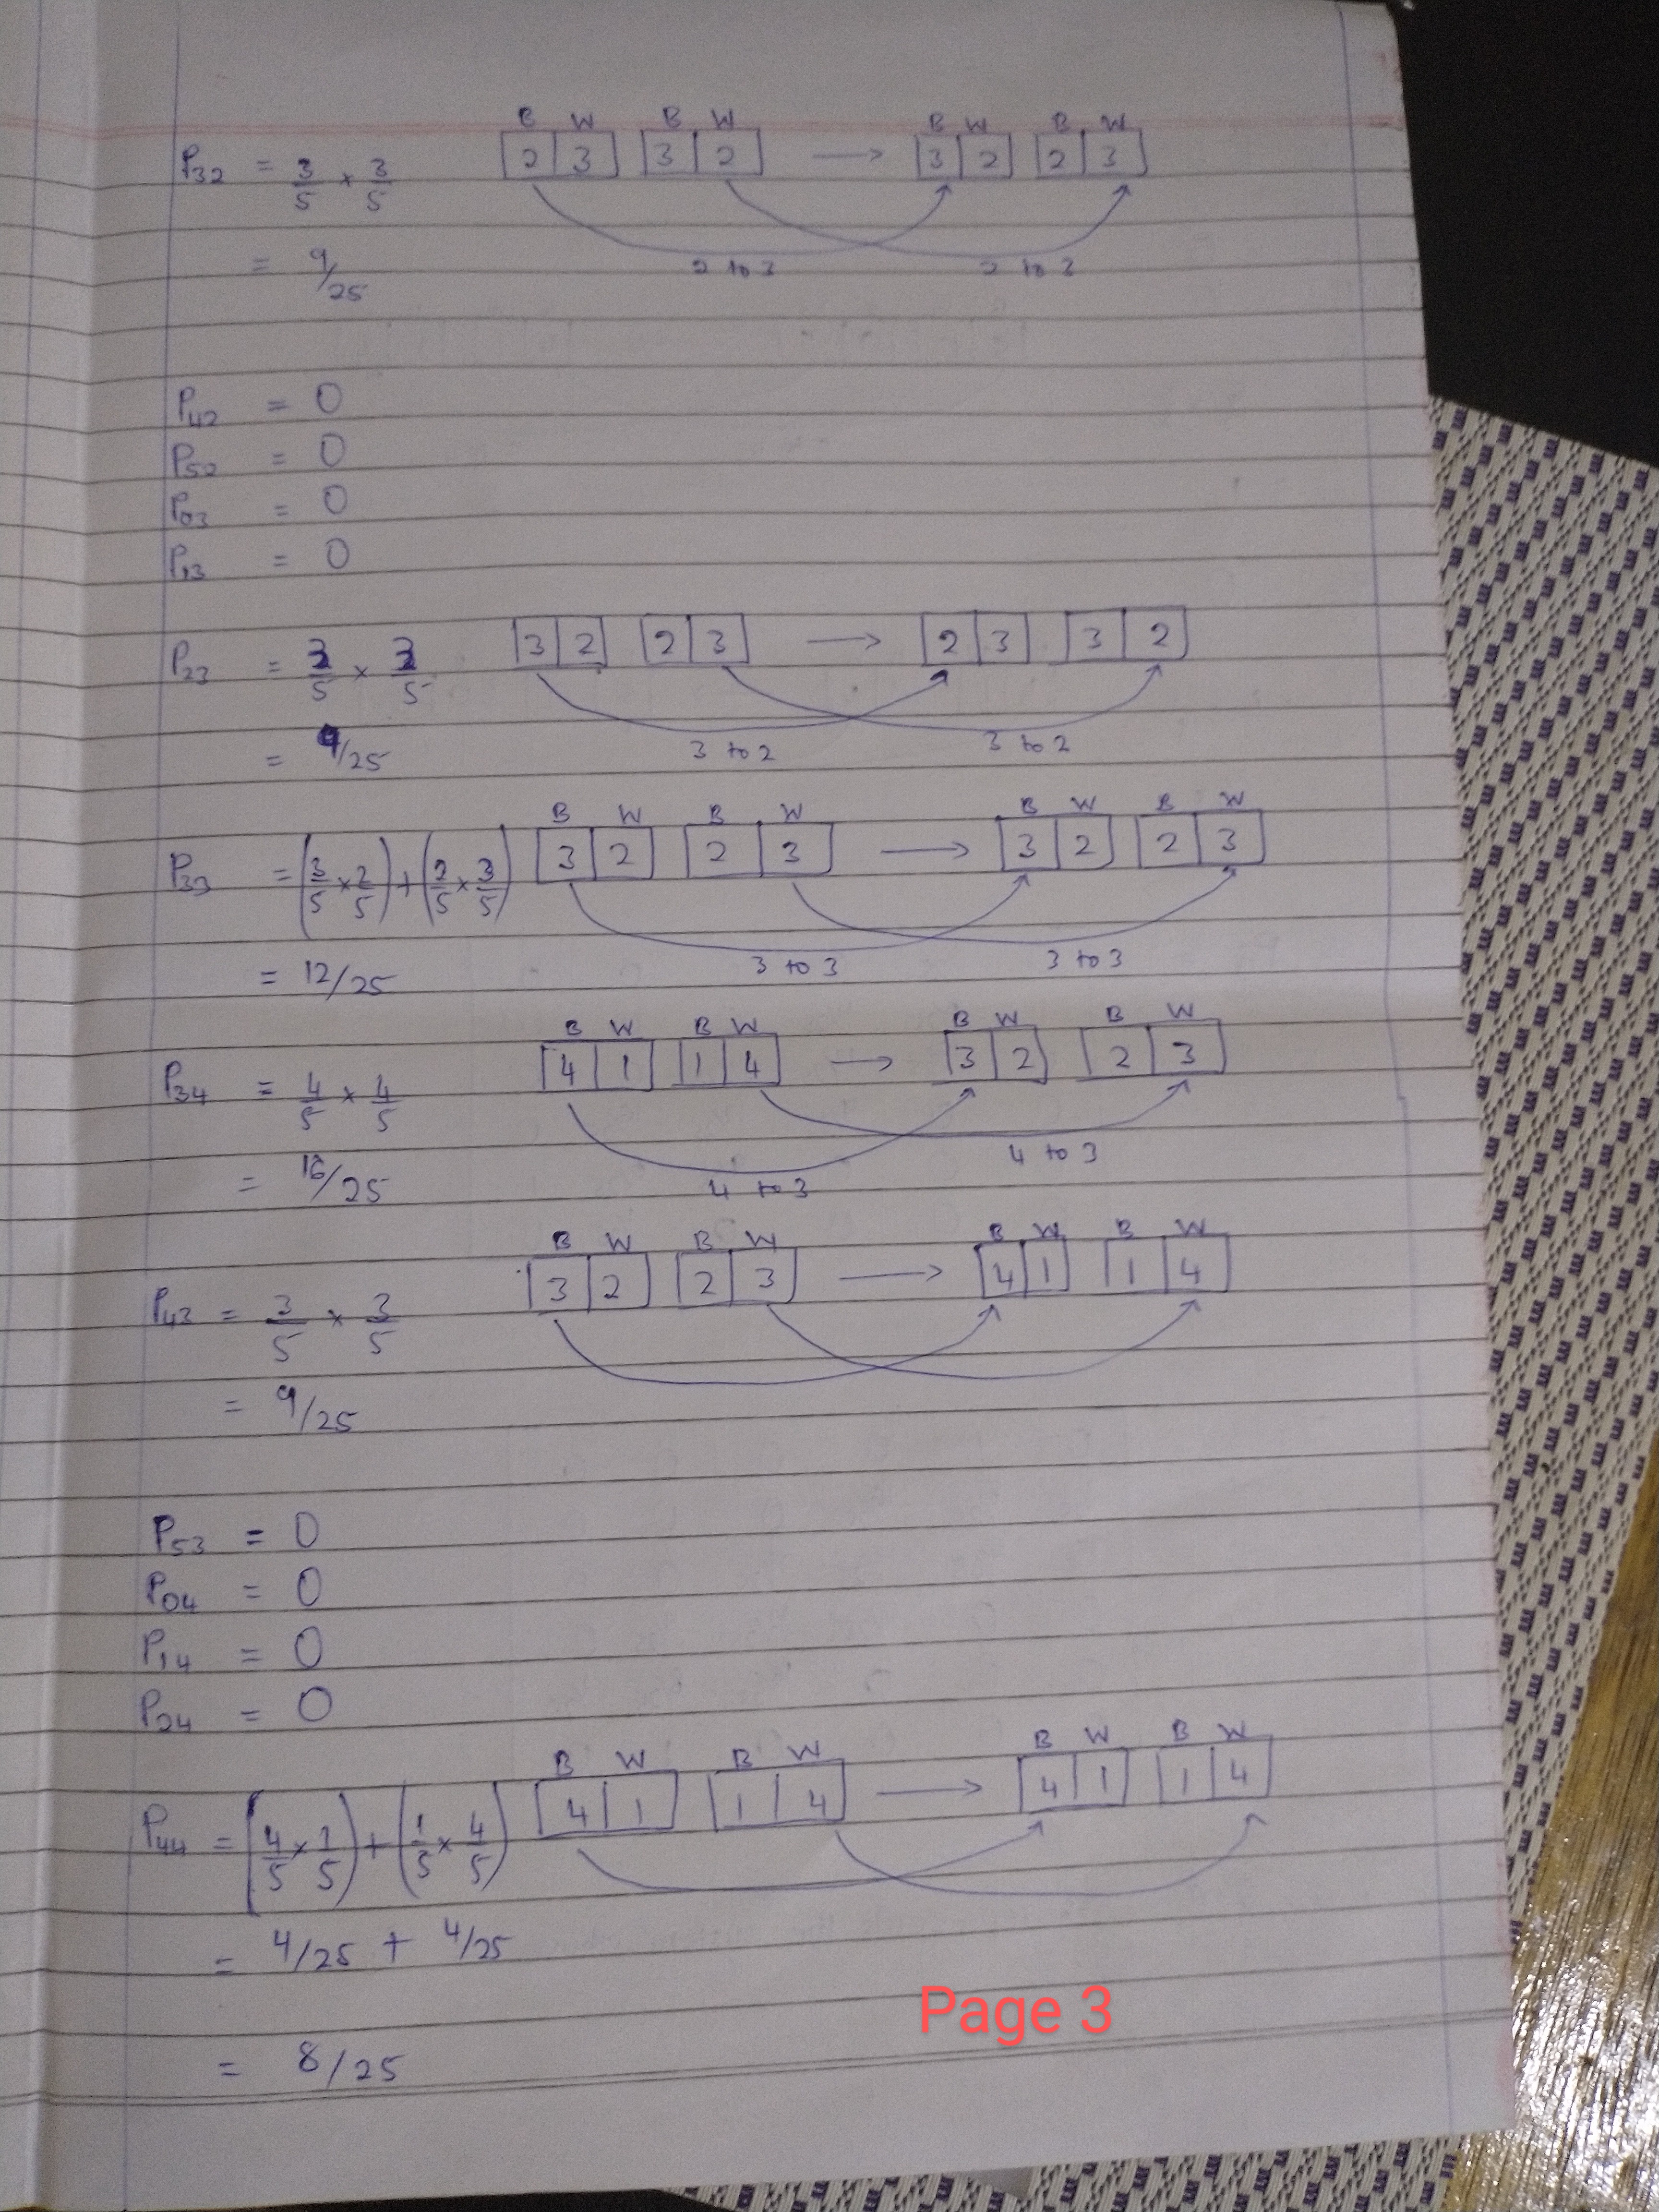 B W B W B W B W
P32 = 3/5 × 3/5 2 3 3 2 → 3 2 2 3
= 9/25 2 to 3 2 to 3
P42 = 0
P52 = 0
P03 = 0
P13 = 0
P23 = 3/5 × 3/5 3 2 2 3 → 2 3 3 2
= 9/25 3 to 2 3 to 2
B W B W B W B W
P33 = (3/5 × 2/5) + (2/5 × 3/5) 3 2 2 3 → 3 2 2 3
= 12/25 3 to 3 3 to 3
B W B W B W B W
P34 = 4/5 × 4/5 4 1 1 4 → 3 2 2 3
= 16/25 4 to 3 4 to 3
B W B W B W B W
P43 = 3/5 × 3/5 3 2 2 3 → 4 1 1 4
= 9/25
P53 = 0
P04 = 0
P14 = 0
P24 = 0
B W B W B W B W
P44 = (4/5 × 1/5) + (1/5 × 4/5) 4 1 1 4 → 4 1 1 4
= 4/25 + 4/25
= 8/25
Page 3